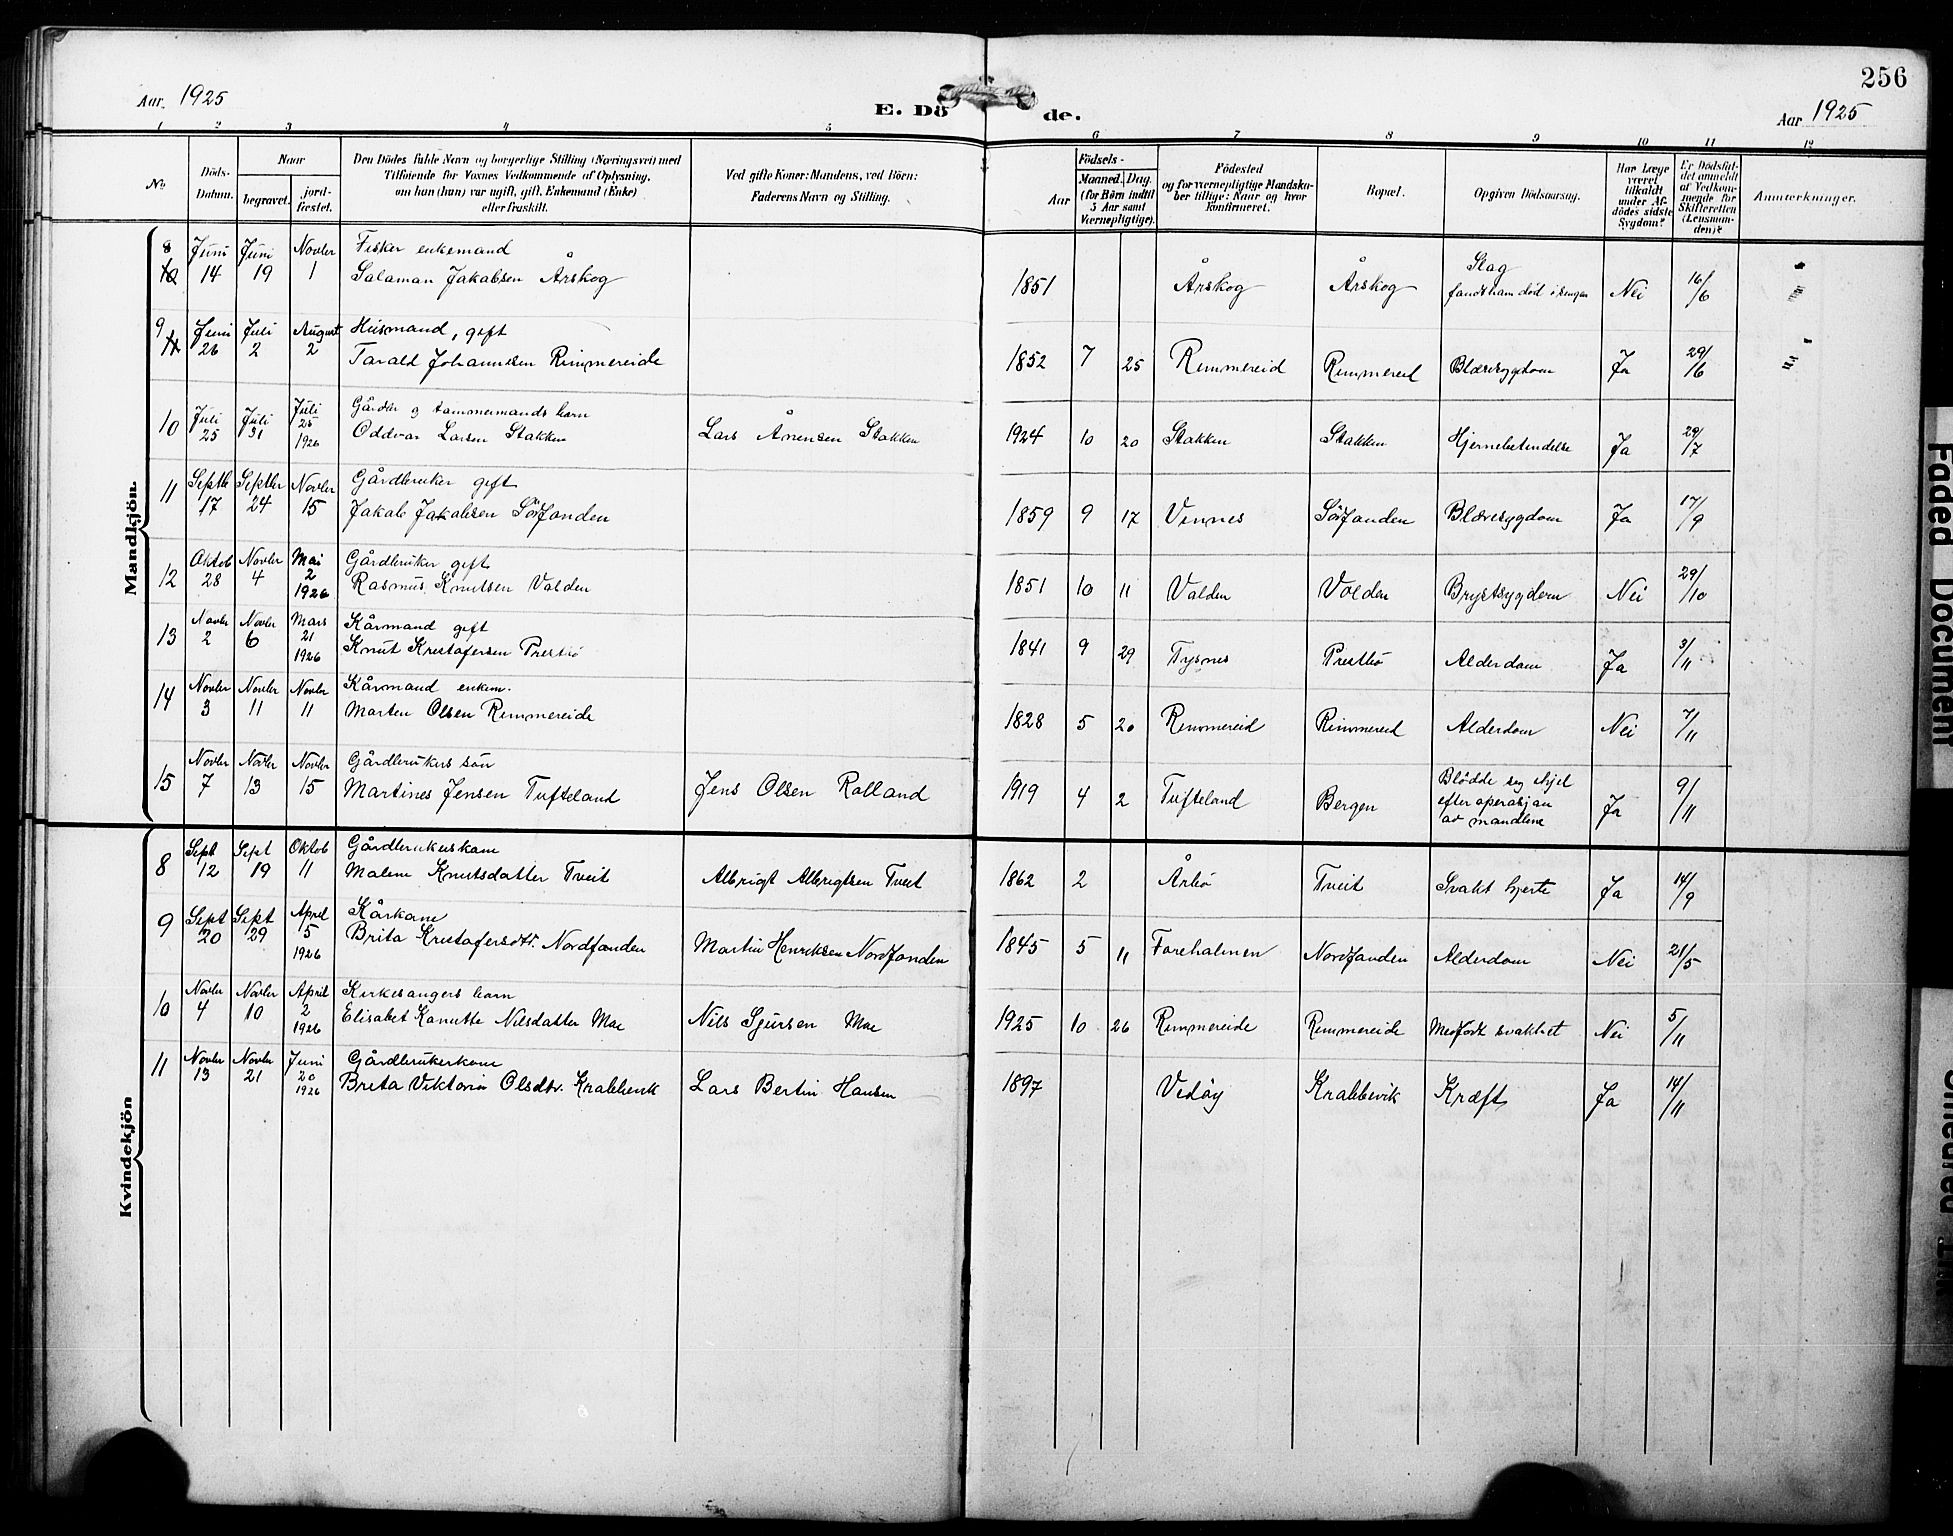 256
Aar 1925
E. Dö de.
Aar 1925
1 2 3 4 5 6 7 8 9 10 11 12
No.
Döds-
Datum.
Naar
begravet.
jord-
fæstet.
Den Dödes fulde Navn og borgerlige Stilling (Næringsvei) med
Tilföiende for Voxnes Vedkommende af Oplysning,
om han (hun) var ugift, gift, Enkemand (Enke)
eller fraskilt.
Ved gifte Koner: Mandens, ved Börn:
Faderens Navn og Stilling.
Födsels-
Aar
Maaned. Dag.
(for Børn indtil
5 Aar samt
Værnepligtige).
Födested
og for værnepligtige Mandska-
ber tillige: Naar og hvor
konfirmeret.
Bopæl.
Opgiven Dödsaarsag.
Har Læge
været
tilkaldt
under Af-
dödes sidste
Sygdom?
Er Dödsfal-
det anmeldt
af Vedkom-
mende for
Skifteretten
(Lensman-
den)?
Anmærkninger.
Mandkjön.
8 Juni 14 Juni 19 Novbr 1 Fisker enkemand
Salaman Jakobsen Årskog 1851 Årskog Årskog Slag
fandt ham död i sengen Nei 16/6
9 Juni 26 Juli 2 August 2 Husmand, gift
Tarald Johannssen Rimmereide 1852 7 25 Rimmereid Rimmereid Blæresygdom Ja 29/6
10 Juli 25 Juli 31 Juli 25 1926 Gårdbr. og tømmermands barn
Oddvar Larsen Stokken Lars Årnensen Stokken 1924 10 20 Stokken Stokken Hjernebetendelse Ja 29/7
11 Septbr 17 Septbr 24 Novbr 15 Gårdbruker gift
Jakob Jakobsen Sørfonden 1859 9 17 Vinnes Sørfonden Blæresygdom Ja 17/9
12 Oktob 28 Novbr 4 Mai 2 1926 Gårdbruker gift
Rasmus Knutsen Volden 1851 10 11 Volden Volden Brystsygdom Nei 29/10
13 Novbr 2 Novbr 6 Mars 21 1926 Kårmand gift
Knut Kristofersen Prestbö 1841 9 29 Tysnes Prestbö Alderdom Ja 3/11
14 Novbr 3 Novbr 11 Novbr 11 Kårmand enkem.
Marten Olsen Rimmereide 1828 5 20 Rimmereid Rimmereid Alderdom Nei 7/11
15 Novbr 7 Novbr 13 Novbr 15 Gårdbrukers sön
Martines Jensen Tufteland Jens Olsen Rolland 1919 4 2 Tufteland Bergen Blödde seg ihjel
efter operasjon
av mandlene Ja 9/11
Kvindekjön
8 Sept 12 Sept 19 Oktob 11 Gårdbrukerskone
Malene Knutsdatter Tveit Albrigt Albrigtsen Tveit 1862 2 Årbö Tveit Svakt hjerte Ja 14/9
9 Sept 20 Sept 29 April 5 1926 Kårkone
Brita Kristofersdtr. Nordfonden Martin Henriksen Nordfonden 1845 5 11 Foreholmen Nordfonden Alderdom Nei 21/5
10 Novbr 4 Novbr 10 April 2 1926 Kirkesangers barn
Elisabet Kanutte Nilsdatter Moe Nils Sjursen Moe 1925 10 26 Rimmereide Rimmereide Medfödt svakhet Nei 5/11
11 Novbr 13 Novbr 21 Juni 20 1926 Gårdbrukerkone
Brita Viktoria Olsdtr. Krabbevik Lars Bertin Hansen 1897 Vedöy Krabbevik Kræft Ja 14/11
Faded Document